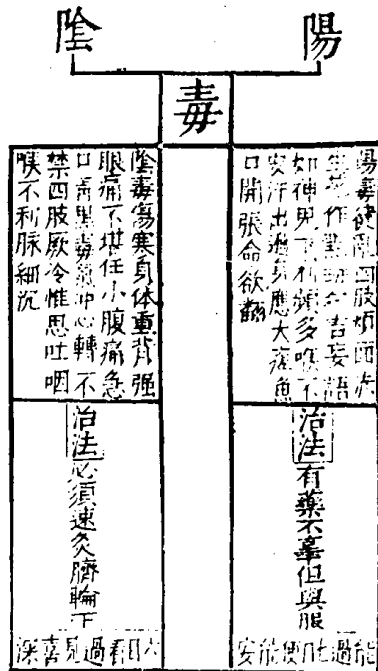 陽
陰
毒
陽毒健亂四肢煩面赤
生花作點斑 言妄語
如神鬼下利頻多喉不
安汗出過身應大瘥魚
口開張命欲翻
治法有藥不辜但與服
能過七日便能安
陰毒傷寒身体重背强
眼痛不堪任小腹痛急
口青黑毒氣冲心轉不
禁四肢厥冷惟思吐咽
喉不利脉細沉
治法必須速灸臍輪下
六日看過見喜深